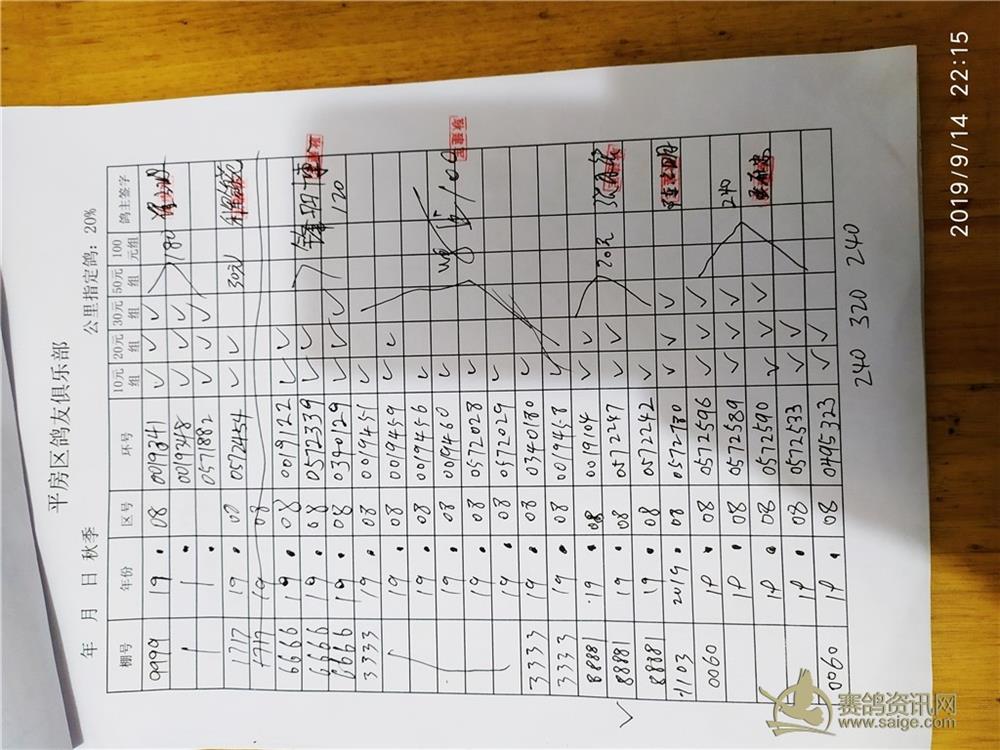 平房区鸽友俱乐部
年 月 日 秋季 公里指定鸽：20%
棚号 年份 区号 环号 10元组 20元组 30元组 50元组 100元组 鸽主签字
9999 19. 08 0019241 ✓ ✓ ✓
0019248 ✓ ✓ ✓ 180
0571882 ✓ ✓ ✓
1717 19. 08 0572454 ✓ ✓ 30元
1717 19 08
6666 19. 08 0019122 ✓ ✓
6666 19. 08 0572339 ✓ ✓ ✓
6666 19. 08 0340129 ✓ ✓ ✓ 120
3333 19. 08 0019451 ✓ ✓
19. 08 0019459 ✓ ✓
19. 08 0019456 ✓
19. 08 0019460 ✓ 100
19. 08 0572028 ✓
19. 08 0572029 ✓
3333 19. 08 0340180 ✓
3333 19. 08 0019458 ✓
8881 19. 08 0019104 ✓ ✓
✓ 8881 19. 08 0572247 ✓ ✓
8881 19. 08 0572242 ✓ ✓
1103 2019. 08 0572730 ✓ ✓ ✓
0060 19. 08 0572596 ✓ ✓ ✓ ✓
19. 08 0572589 ✓ ✓ ✓ 240
19. 08 0572590 ✓ ✓ ✓
19. 08 0572533 ✓ ✓
0060 19. 08 0495323 ✓ ✓
240 320 240
2019/9/14 22:15
赛鸽资讯网
www.saige.com